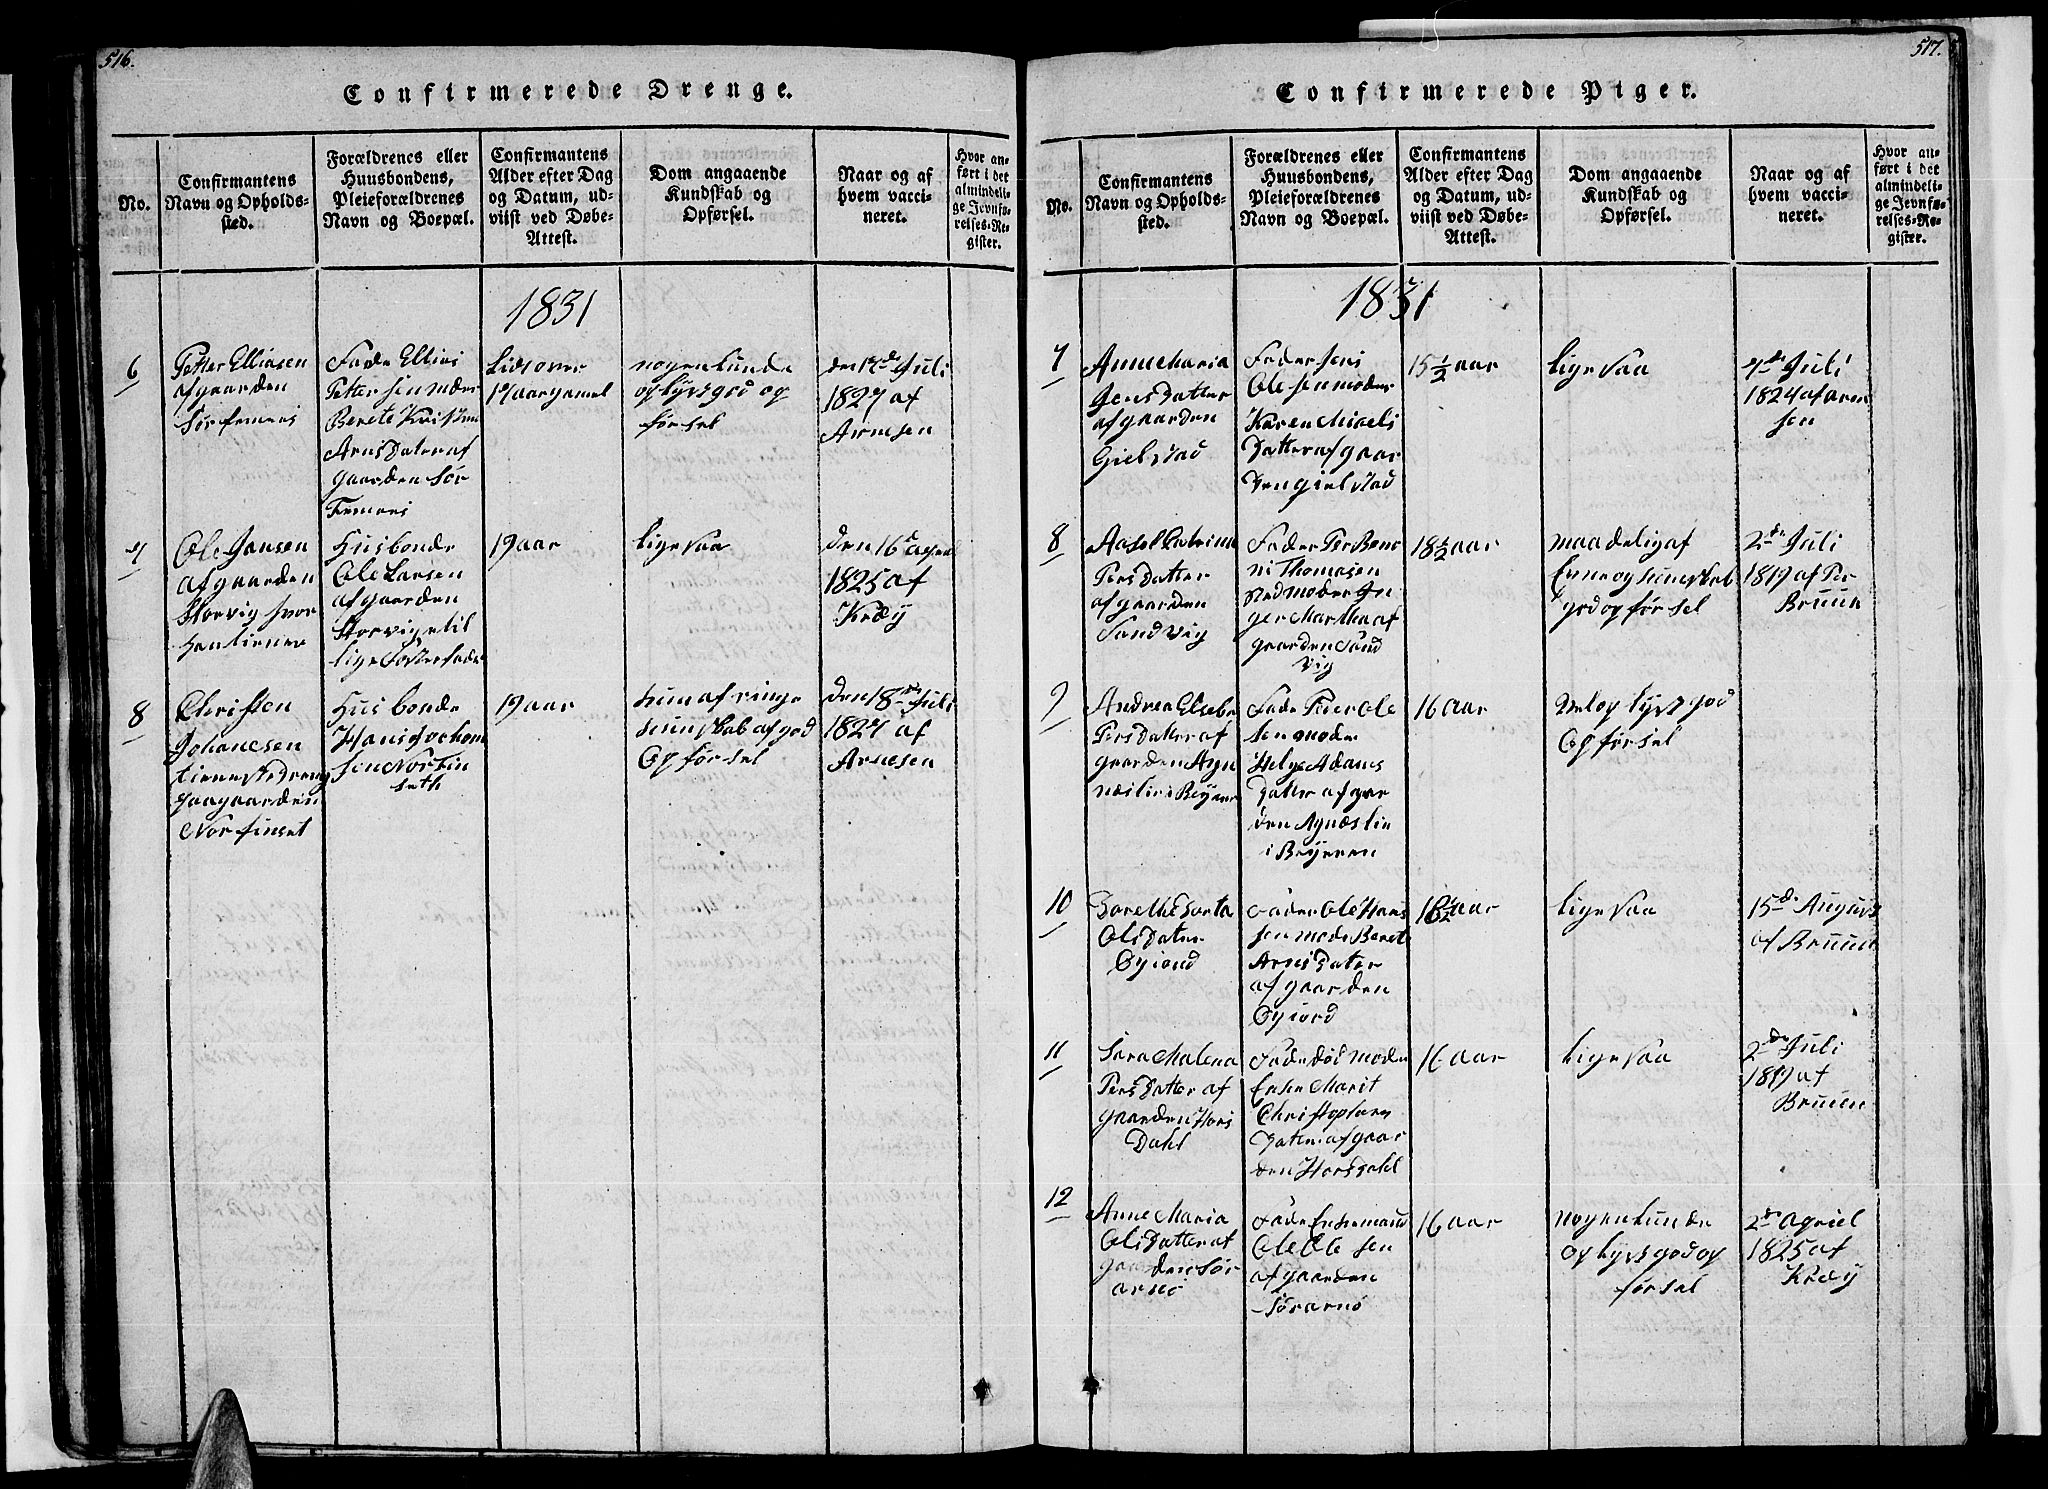 516.
Confirmerede Drenge.
No.
Confirmantens
Navn og Opholds-
sted.
Forældrenes eller
Huusbondens,
Pleieforældrenes
Navn og Boepæl.
Confirmantens
Alder efter Dag
og Datum, ud-
viist ved Døbe-
Attest.
Dom angaaende
Kundskab og
Opførsel.
Naar og af
hvem vacci-
neret.
Hvor an-
ført i det
almindeli-
ge Jevnfø-
relses-Re-
gister.
1831
6
Petter Elliasen
afgaarden
Fade Ellias
Pettersen
Arns Dater af
gaarden Sør
17 aar gamel
nogenlunde
oplyst god op
førsel
Juli
1827 af
Arnesen
7
Ole Jansen
afgaarden
Storvig hvor
han tiener
Husbonde
Ole Larsen
afgaarden
Storvig
19 aar
lige saa
den 16
1825 af
Kræy
8
Christen
Johanesen
tieneste Dreng
paagaarden
Nor finset
Husbonde
Hans Jochom
sen Norfin
seth
19 aar
hun af ringe
kunskab af god
Opførsel
den 18 de Juli
1827 af
Arnesen
517.
Confirmerede Piger.
No.
Confirmantens
Navn og Opholds-
sted.
Forældrenes eller
Huusbondens,
Pleieforældrenes
Navn og Boepæl.
Confirmantens
Alder efter Dag
og Datum, ud-
viist ved Døbe-
Attest.
Dom angaaende
Kundskab og
Opførsel.
Naar og af
hvem vacci-
neret.
Hvor an-
ført i det
almindeli-
ge Jevnfø-
relses-Re-
gister.
1831
7
Anne Maria
Jens Datter
afgaarden
Gielstad
Fader Jens
Olesen moder
Karen Micels
Datter af gaar
den gielstad
15 1/2 aar
lige saa
Juli
1824 af Arne
sen
8
Pers Datter
afgaarden
Sandvig
Fader Per Bono
ni Thomasen
Stedmoder In
ger Martha af
gaarden Sand
vig
18 1/2 aar
maadelig af
Evne og kunskab
god opførsel
2 de Juli
1819 af Per
Bruun
9
Andrea Elsebe
Pers Datter af
gaarden Agn
Fade Peder Ole
sen moder
Helge Adams
Datter af gaar
den Agnæslie
i Beyeren
16 aar
vel oplyst god
Opførsel
10
Dorethe Dorta
Ols Dater
Øyiord
Fader Ole Hans
sen mode Beret
Arns Dater
af gaarden
Øyiord
lige saa
15 de August
af Bruun
11
Sara Malena
Pers Datter af
gaarden Hors
Dahl
Fade død moder
Enke Marit
Christophers
Dater af gaar
den Horsdahl
16 aar
lige saa
2 de Juli
1819 af
Bruun
12
Anne Maria
Ols Datter af
gaarden Sør
arnø
Fade Enkemand
Ole Ole sen
afgaarden
Sørarnø
16 aar
nogenlunde
oplyst god op
førsel
2 de Apriel
1825 af
Kræy